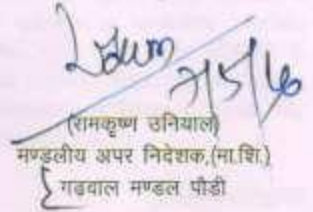 7/5/16
(रामकृष्ण उनियाल)
मण्डलीय अपर निदेशक,(मा.शि.)
गढ़वाल मण्डल पौड़ी